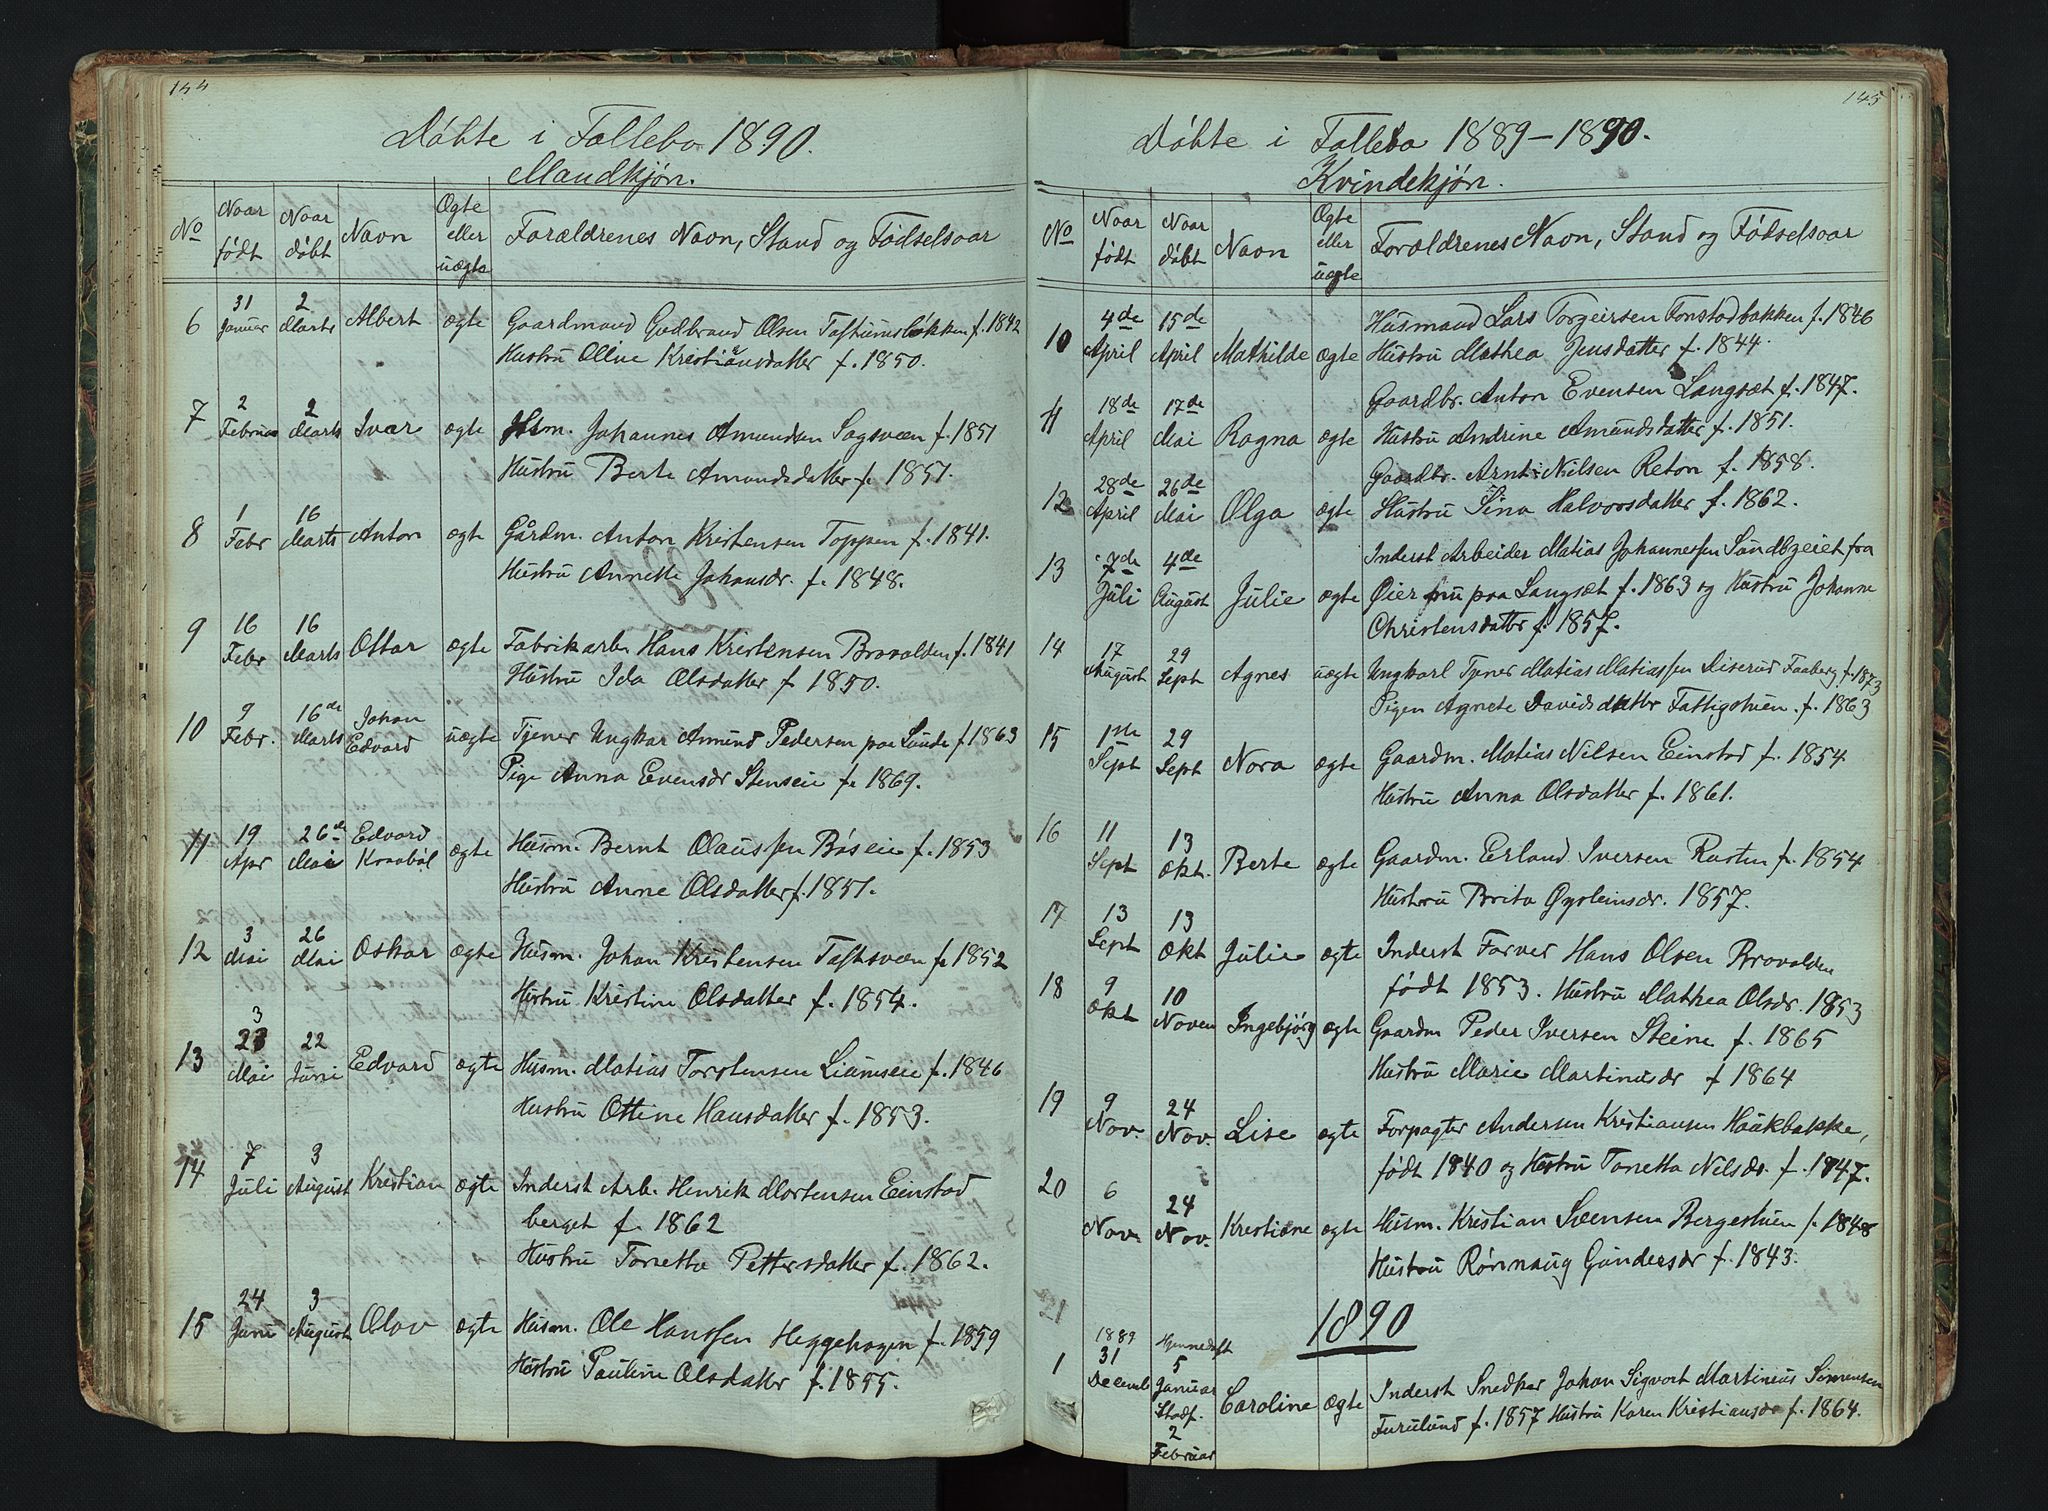 144
Døbte i Follebo 1890.
Mandkjøn.
No Naar født Naar døbt Navn Ægte eller uægte Forældrenes Navn, Stand og Fødselsaar
6 31 Januar 2 Marts Albert ægte Gaardmand Gudbrand Olsen f. 1842
Hustru Oline Kristiansdatter f. 1850.
7 2 Februar 2 Marts Ivar ægte Hsm. Johannes Amundsen Sagsveen f. 1851
Hustru Berte Amundsdatter f. 1851.
8 1 Febr 16 Marts Anton ægte Gårdm. Anton Kristensen Toppen f. 1841.
Hustru Annette Johansdr. f. 1848.
9 16 Febr 16 Marts Ottar ægte Fabrikarb Hans Kristensen Brovolden f. 1841
Hustru Ida Olsdatter f 1850.
10 9 Febr. 16de Marts Johan Edvard uægte Tjener Ungkar Amund Pedersen paa Sunde f. 1863
Pige Anna Evensdr Stenseie f. 1869.
11 19 Apr 26d Mai Edvard Kraabøl ægte Husm. Bernt Olaussen Bøseie f. 1853
Hustru Anne Olsdatter f. 1851.
12 3 Mai 26 Mai Oskar ægte Husm. Johan Kristensen Toftsveen f. 1852
Hustru Kristine Olsdatter f. 1854.
13 23 Mai 22 Juni Edvard ægte Husm. Matias Torstensen Liumseie f. 1846
Hustru Ottine Hansdatter f. 1853.
14 7 Juli 3 August Kristian ægte Inderst Arb. Henrik Mortensen Einstad
berget f. 1862
Hustru Tonetta Pettersdatter f. 1862.
15 24 Juni 3 August Olav ægte Husm. Ole Hanssen Heggehagen f. 1859
Hustru Pauline Olsdatter f. 1855.
145
Døbte i Follebo 1889–1890.
Kvindekjøn.
No Naar født Naar døbt Navn Ægte eller uægte Forældrenes Navn, Stand og Fødselsaar
10 4de April 15de April Mathilde ægte Husmand Lars Torgersen Tonstadbakken f. 1846
Hustru Mathea Jensdatter f. 1844.
11 18de April 17de Mai Ragna ægte Gaardbr. Anton Evensen Langsæt f. 1847.
Hustru Andrine Amundsdatter f. 1851.
12 28de April 26de Mai Olga ægte Gaardbr. Arnt Nilsen Reton f. 1858.
Hustru Sina Halvorsdatter f. 1862.
13 7de Juli 4de August Julie ægte Inderst Arbeider Matias Johannessen Sundbzeiet fra
Øier nu paa Langsæt f. 1863 og Hustru Johanne
Christensdatter f. 1857.
14 17 August 29 Sept Agnes uægte Ungkarl Tjener Matias Matiassen Diserud Faaberg f. 1873
Pigen Agnete Davidsdatter Fattigstuen. f. 1863
15 1ste Sept 29 Sept Nora ægte Gaardm. Matias Nilsen Einstad f. 1854
Hustru Anna Olsdatter f. 1861.
16 11 Sept 13 Okt. Berte ægte Gaardm. Erland Iversen Rusten f. 1854
Hustru Brita Øysteinsdr. 1857.
17 13 Sept 13 Okt Julie ægte Inderst Farver Hans Olsen Brovolden
født 1853. Hustru Mathea Olsdr. 1853
18 9 Okt 10 Novem Ingebjørg ægte Gaardm Peder Iversen Steine f. 1865
Hustru Marie Martinusdr f 1864
19 9 Nov. 24 Nov. Lise ægte Forpagter Andersen Kristiansen Haakbakke,
født 1840 og Hustru Tonetta Nilsdr. f. 1847.
20 6 Nov. 24 Nov. Kristiane ægte Husm. Kristian Svensen Bergestuen f. 1848
Hustru Rønnaug Gundersdr f. 1843.
21 1890
1 1889 31 Decemb Hjemmedøbt 5 Januar Stadf. 2 Februar Caroline ægte Inderst Snedker Johan Sigvort Martinius Simensen
Furulund f. 1857 Hustru Karen Kristiansdr f. 1864.